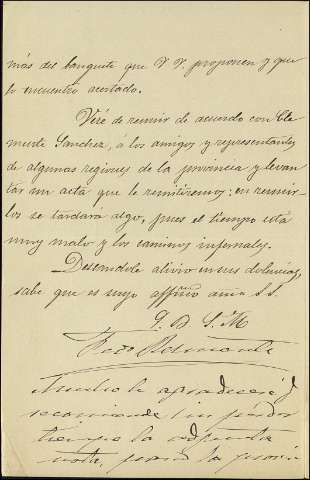 más del banquete que V V. proponen y que
lo encuentro acertado.
Veré de reunir de acuerdo con Cle
mente Sanchez, á los amigos y representantes
de algunas regiones de la provincia y levan
tar un acta que le remitiremos: en reunir
los se tardará algo, pues el tiempo está
muy malo y los caminos infernales.
Deseandole alivio en sus dolencias,
sabe que es suyo affmo amo S. S.
Q B S. M
Mucho le agradeceré
recomiende sin perder
tiempo la adjunta
nota, para la